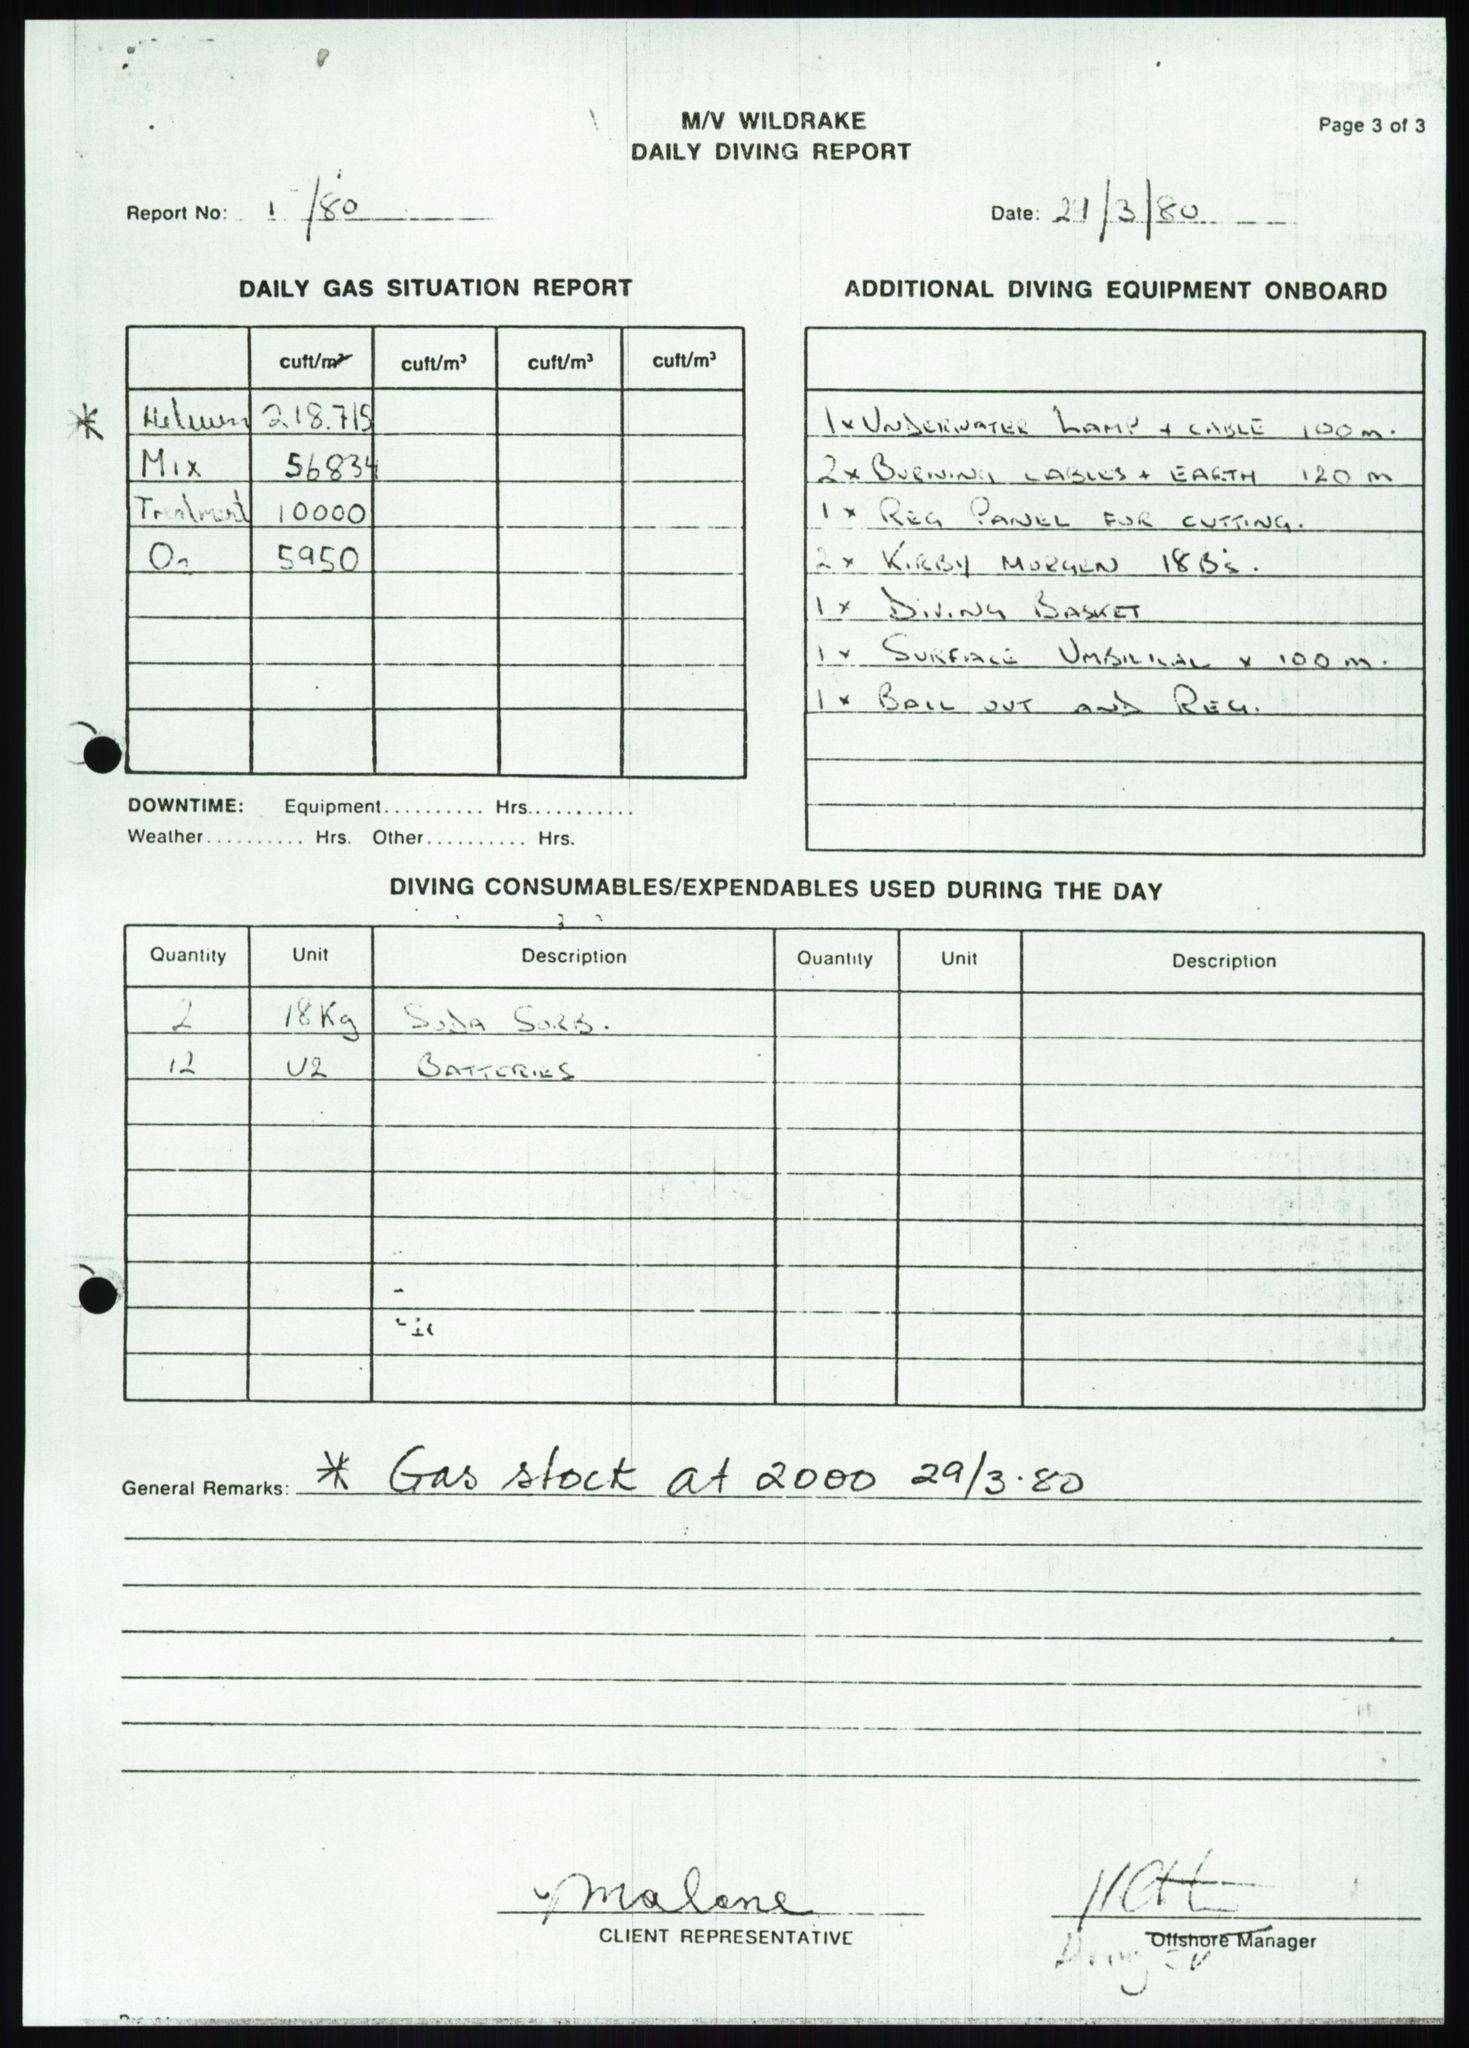 M/V WILDRAKE
DAILY DIVING REPORT
Page 3 of 3
Report No: 1/80
Date: 29/3/80
DAILY GAS SITUATION REPORT
cuft/m³ cuft/m³ cuft/m³ cuft/m³
* Helium 218.715
Mix 56834
Treatment 10000
O₂ 5950
DOWNTIME: Equipment.......... Hrs...........
Weather.......... Hrs. Other.......... Hrs.
ADDITIONAL DIVING EQUIPMENT ONBOARD
1 x UNDERWATER LAMP + CABLE 100 m.
2 x BURNING CABLES + EARTH 120 m
1 x REG PANEL FOR CUTTING.
2 x KIRBY MORGEN 18 B's.
1 x DIVING BASKET
1 x SURFACE UMBILICAL x 100 m.
1 x BAIL OUT AND REG.
DIVING CONSUMABLES/EXPENDABLES USED DURING THE DAY
Quantity Unit Description Quantity Unit Description
2 18Kg SODA SORB.
12 U2 BATTERIES
General Remarks: * Gas stock at 2000 29/3.80
Malone
CLIENT REPRESENTATIVE
Offshore Manager
Diving